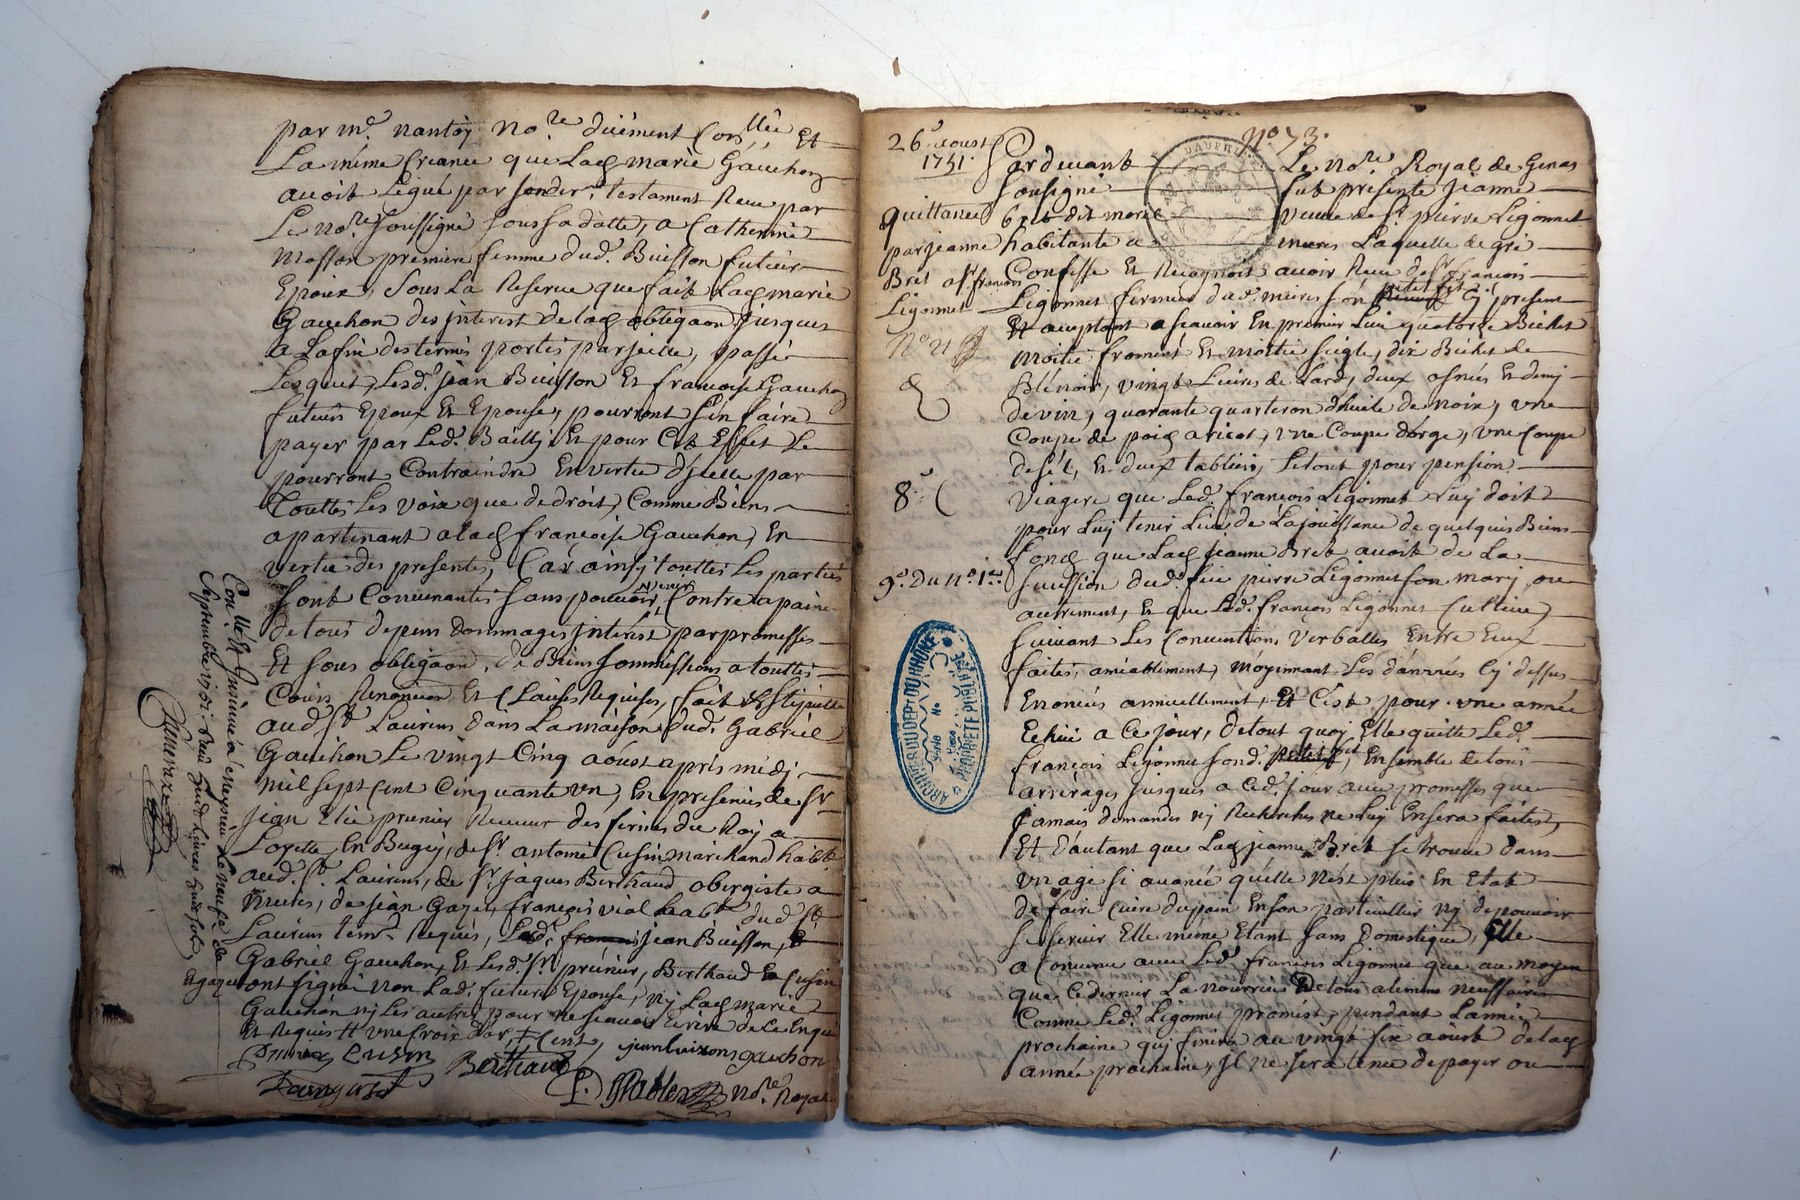 par me. nantoy no.re düement Con.llée Et
La même Creance que Lad. marie Gauchon
avoit Legué par son der.r testament Receu par
Le no.re soussigné sous sa datte, a Catherine
Masson premiere femme dud. Buisson futeur
Epoux, sous La Reserve que fait Lad. marie
Gauchon des jnterest de lad. obligaon jusques
a La fin des termes portés par jcelle, passé
Lesquels, Lesd. jean Buisson Et françoise Gauchon
futeurs Epoux Et Epouse, pourront s'en faire
payer par Led. Bailly Et pour Cet Effet Le
pourront Contraindre En vertu d'jcelle par
Touttes Les voix que de droit, Comme Biens
apartenant a lad. françoise Gauchon, En
vertu des presentes, Car ainsy touttes Les parties
sont Convenantes sans pouvoir venir Contre a paine
de tous depens dommages jnterest par promesses
Et sous obligaon de Biens soumissions a touttes
Cours Renonciaon Et Clauses Requises, fait Et stipullé
aud. St. Laurens dans La maison dud. Gabriel
Gauchon Le vingt Cinq aoust apres midy
mil sept Cent Cinquante vn, En presence de sr.
jean prunier Receveur des fermes du Roy a
Loyette En Bugey, de sr. antoine Cusin marchand habt.
aud. St. Laurens, de sr. jaques Berthaud obergiste a
de jean Gaget, françois vial habt. dud. St.
Laurens tem. Requis, Led. jean Buisson, Et
Gabriel Gauchon, Et Lesd. srs. prunier, Berthaud Et Cusin
ont signé non Lad. future Epouse, ny Lad. marie
Gauchon ny Les autres pour ne sçavoir Ecrire de Ce Enquis
Et Requis vne Croix d'or
Cusin Berthaud jean buisson gauchon
no.re Royal
Con.llé Et jnsinué a Le neuf
Septembre 1751. Reçu
26e. aoust
1751.
No 73.
quittance
par jeanne
Bret a sr. françois
Ligonnet
No 21
8e
9e. Du No. 1er
Pardevant Le no.re Royal de Genas
sousigné fut presente jeanne
Bret dit morel veuve de sr. pierre Ligonnet
habitante a meires Laquelle de gré
Confesse Et Recognoit avoir Receu de sr. françois
Ligonnet fermier dud. meires son petit fil Cy present
Et acceptant a sçavoir En premier Lieu quatorze Bichet
moitié froment Et moitié seigle, dix Bichet de
Blé noir, vingt Livres de Lard, deux asnées Et demy
de vin, quarante quarteron d'huile de noix, vne
Coupe de pois aricot, vne Coupe d'orge, vne Coupe
de sel, Et deux tabliers, Le tout pour pension
viagere que Led. françois Ligonnet Luy doit
pour Luy tenir Lieu de La jouissance de quelques Biens
fond que Lad. jeanne Bret avoit de La
succession dud. feu pierre Ligonnet son mary, ou
autrement, Et que Led. françois Ligonnet Cultive
suivant Les Conventions verballes Entre Eux
faites amiablement, moyennant Les danrées Cy dessus
Enoncées annuellement, Et C'est pour vne année
Echüe a Ce jour, de tout quoy Elle quitte Led.
françois Ligonnet son d. petit fil, Ensemble de tous
arrerages jusques a Ced. jour avec promesses que
jamais demandes ny Recherches ne Luy En sera faites,
Et d'autant que Lad. jeanne Bret se trouve dans
vn age si avancé qu'elle n'est plus En Etat
de faire Cuire du pain En son particullier ny de pouvoir
se servir Elle même Etant sans Domestique, Elle
a Convenu avec Led. françois Ligonnet que au moyen
que Ce dernier La nourrira De tous alimens necessaires
Comme Led. Ligonnet promest, pendant L'année
prochaine qui finira au vingt six aoust de lad.
année prochaine, jl ne sera tenu de payer ou
ARCHIVES DU DEP.T DU RHÔNE
PROPRIÉTÉ PUBLIQUE